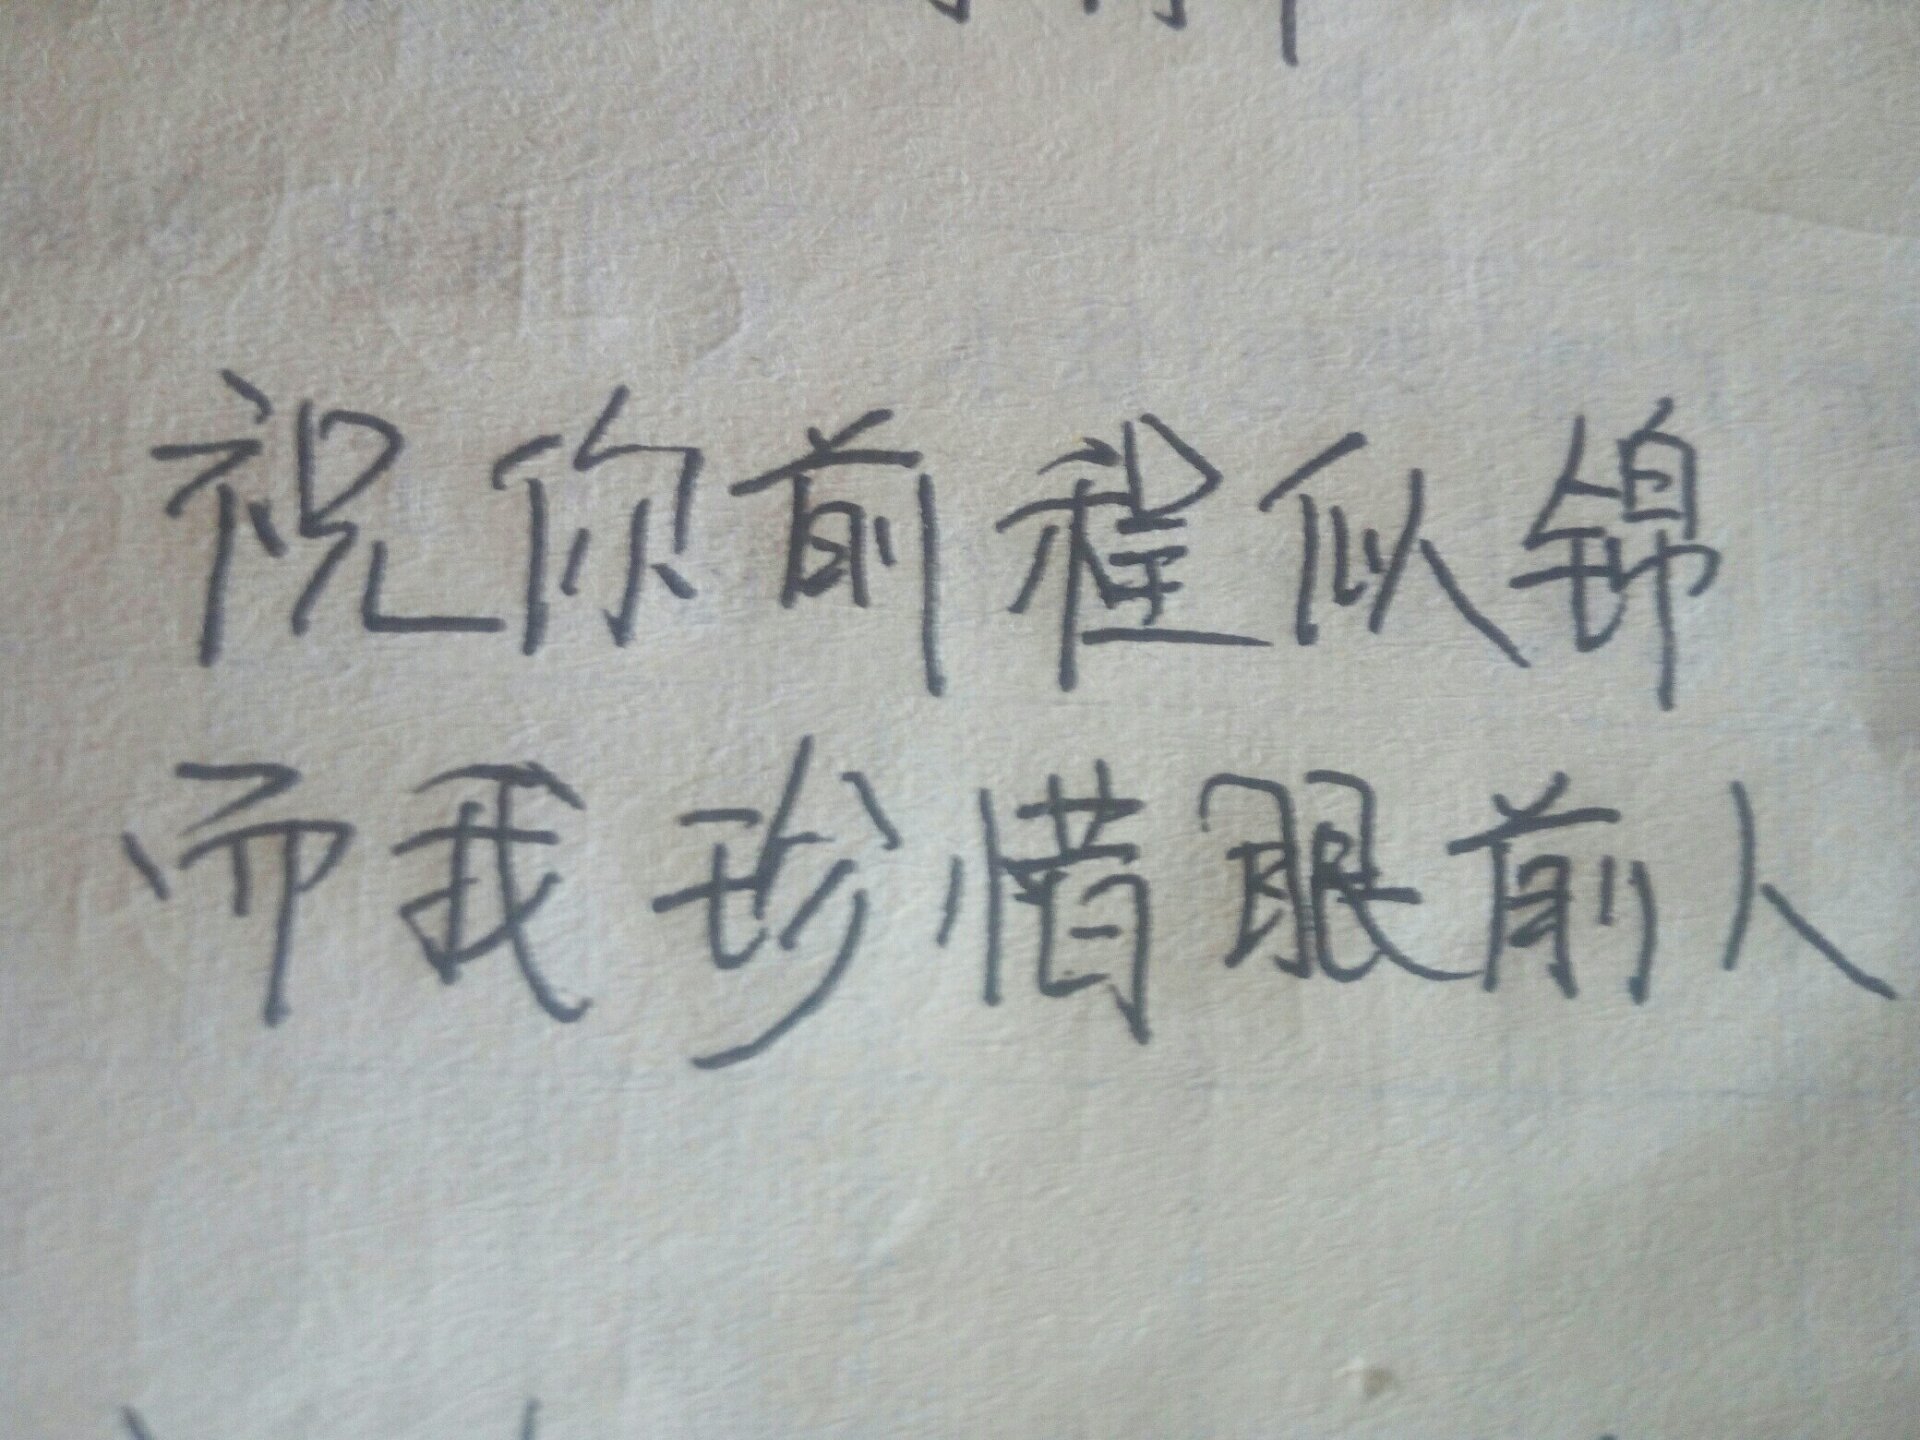 祝你前程似锦
而我珍惜眼前人